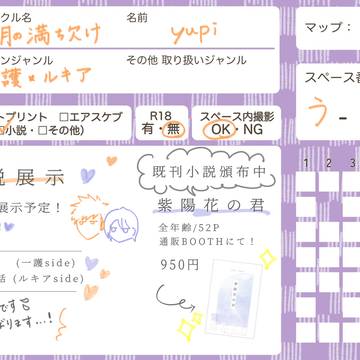 クル名
月の満ち欠け
名前
yupi
マップ：
ンジャンル
護×ルキア
その他 取り扱いジャンル
スペース番
う -
トプリント □エアスケブ
小説・□その他）
R18
有・無
スペース内撮影
OK・NG
説展示
展示予定！
(一護side)
話 (ルキアside)
です
なります…!
既刊小説頒布中
紫陽花の君
全年齢/52P
通販BOOTHにて！
950円
1 2 3